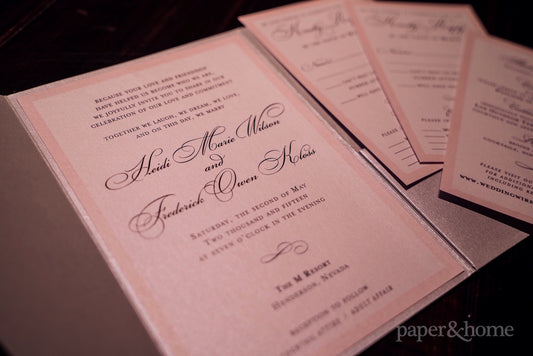 Because your love and friendship
have helped us become who we are,
we joyfully invite you to share in our
celebration of our love and commitment
Together we laugh, we dream, we love,
and on this day, we marry
Heidi Marie Wilson
and
Frederick Owen Kloss
Saturday, the second of May
Two thousand and fifteen
at seven o'clock in the evening
The M Resort
Henderson, Nevada
reception to follow
adult affair
Name(s)
please visit our
for additional
including re
www.weddingwire
paper&home